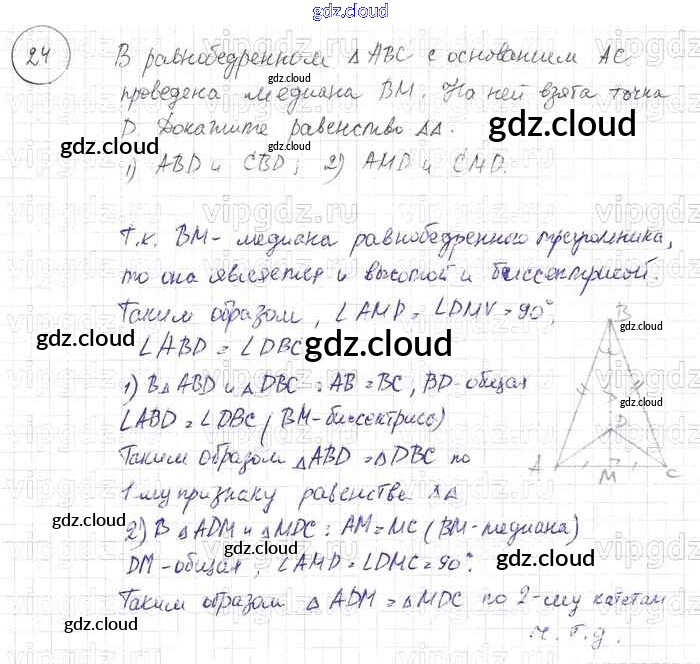 gdz.cloud
24 В равнобедренном △ABC с основанием AC
проведена медиана BM. На ней взята точка
D. Докажите равенство △△.
1) ABD и CBD; 2) AMD и CMD.
Т.к. BM - медиана равнобедренного треугольника,
то она является и высотой и биссектрисой.
Таким образом, ∠AMD = ∠DMV = 90°,
∠ABD = ∠DBC
1) В △ABD и △DBC: AB = BC, BD-общая
∠ABD = ∠DBC (BM-биссектриса)
Таким образом △ABD = △DBC по
1 му признаку равенства △△
2) В △ADM и △MDC: AM = MC (BM-медиана)
DM-общая, ∠AMD = ∠DMC = 90°.
Таким образом △ADM = △MDC по 2-му катетам
ч.т.д.
B
D
A M C
gdz.cloud
gdz.cloud
gdz.cloud
gdz.cloud
gdz.cloud
gdz.cloud
gdz.cloud
gdz.cloud
gdz.cloud
gdz.cloud
gdz.cloud
gdz.cloud
gdz.cloud
gdz.cloud
vipgdz.ru